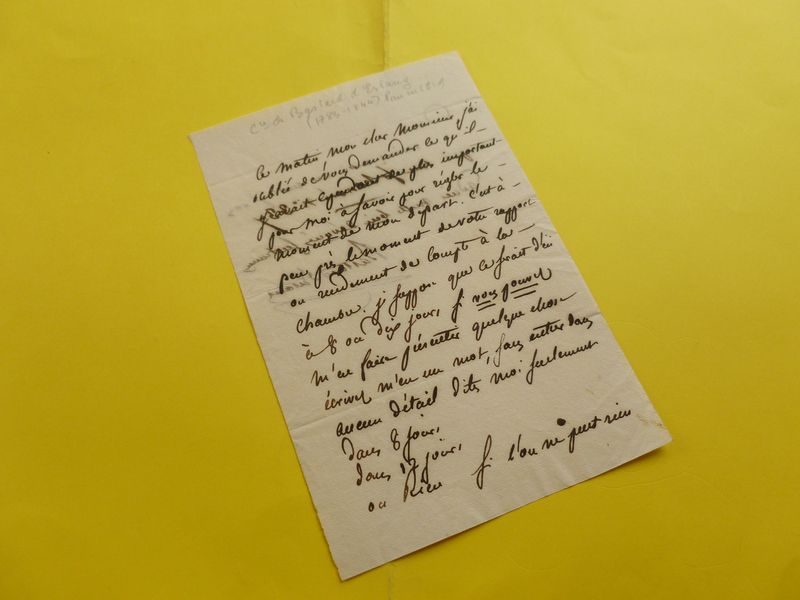 Cte de Bastard d'Estang
(1783-1844) Pair
Ce matin, mon cher Monsieur, j'ai
oublié de vous demander ce qu'il
y avait cependant de plus important
pour moi à savoir pour régler le
moment de mon départ. c'est à
peu près le moment de votre rapport
ou rendement de compte à la
chambre. je suppose que ce serait d'ici
à 8 ou dix jours, si vous pouvez
m'en faire présenter quelque chose
écrivez m'en un mot, sans entrer dans
aucun détail dites moi seulement
dans 8 jours,
dans 15 jours,
ou Rien si l'on ne peut rien